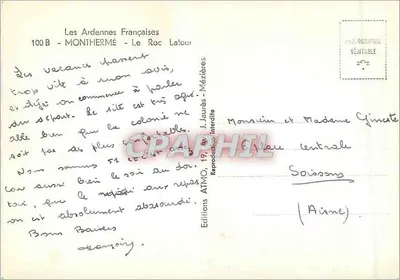 Les Ardennes Françaises
100 B - MONTHERMÉ - Le Roc Latour
Les vacances passent
trop vite à mon avis,
et déjà on commence à parler
du départ. Le site est très agré-
able bien que la colonie ne
soit pas des plus
Nous sommes
car aussi bien le soir au dor-
toir, que le aux repas
on est absolument abasourdi.
Bons Baisers
Editions ATMO, 19, J. Jaurès - Mézières
Reproduction interdite
VÉRITABLE
Monsieur et Madame
Place Centrale
Soissons
(Aisne)
CPAPHIL